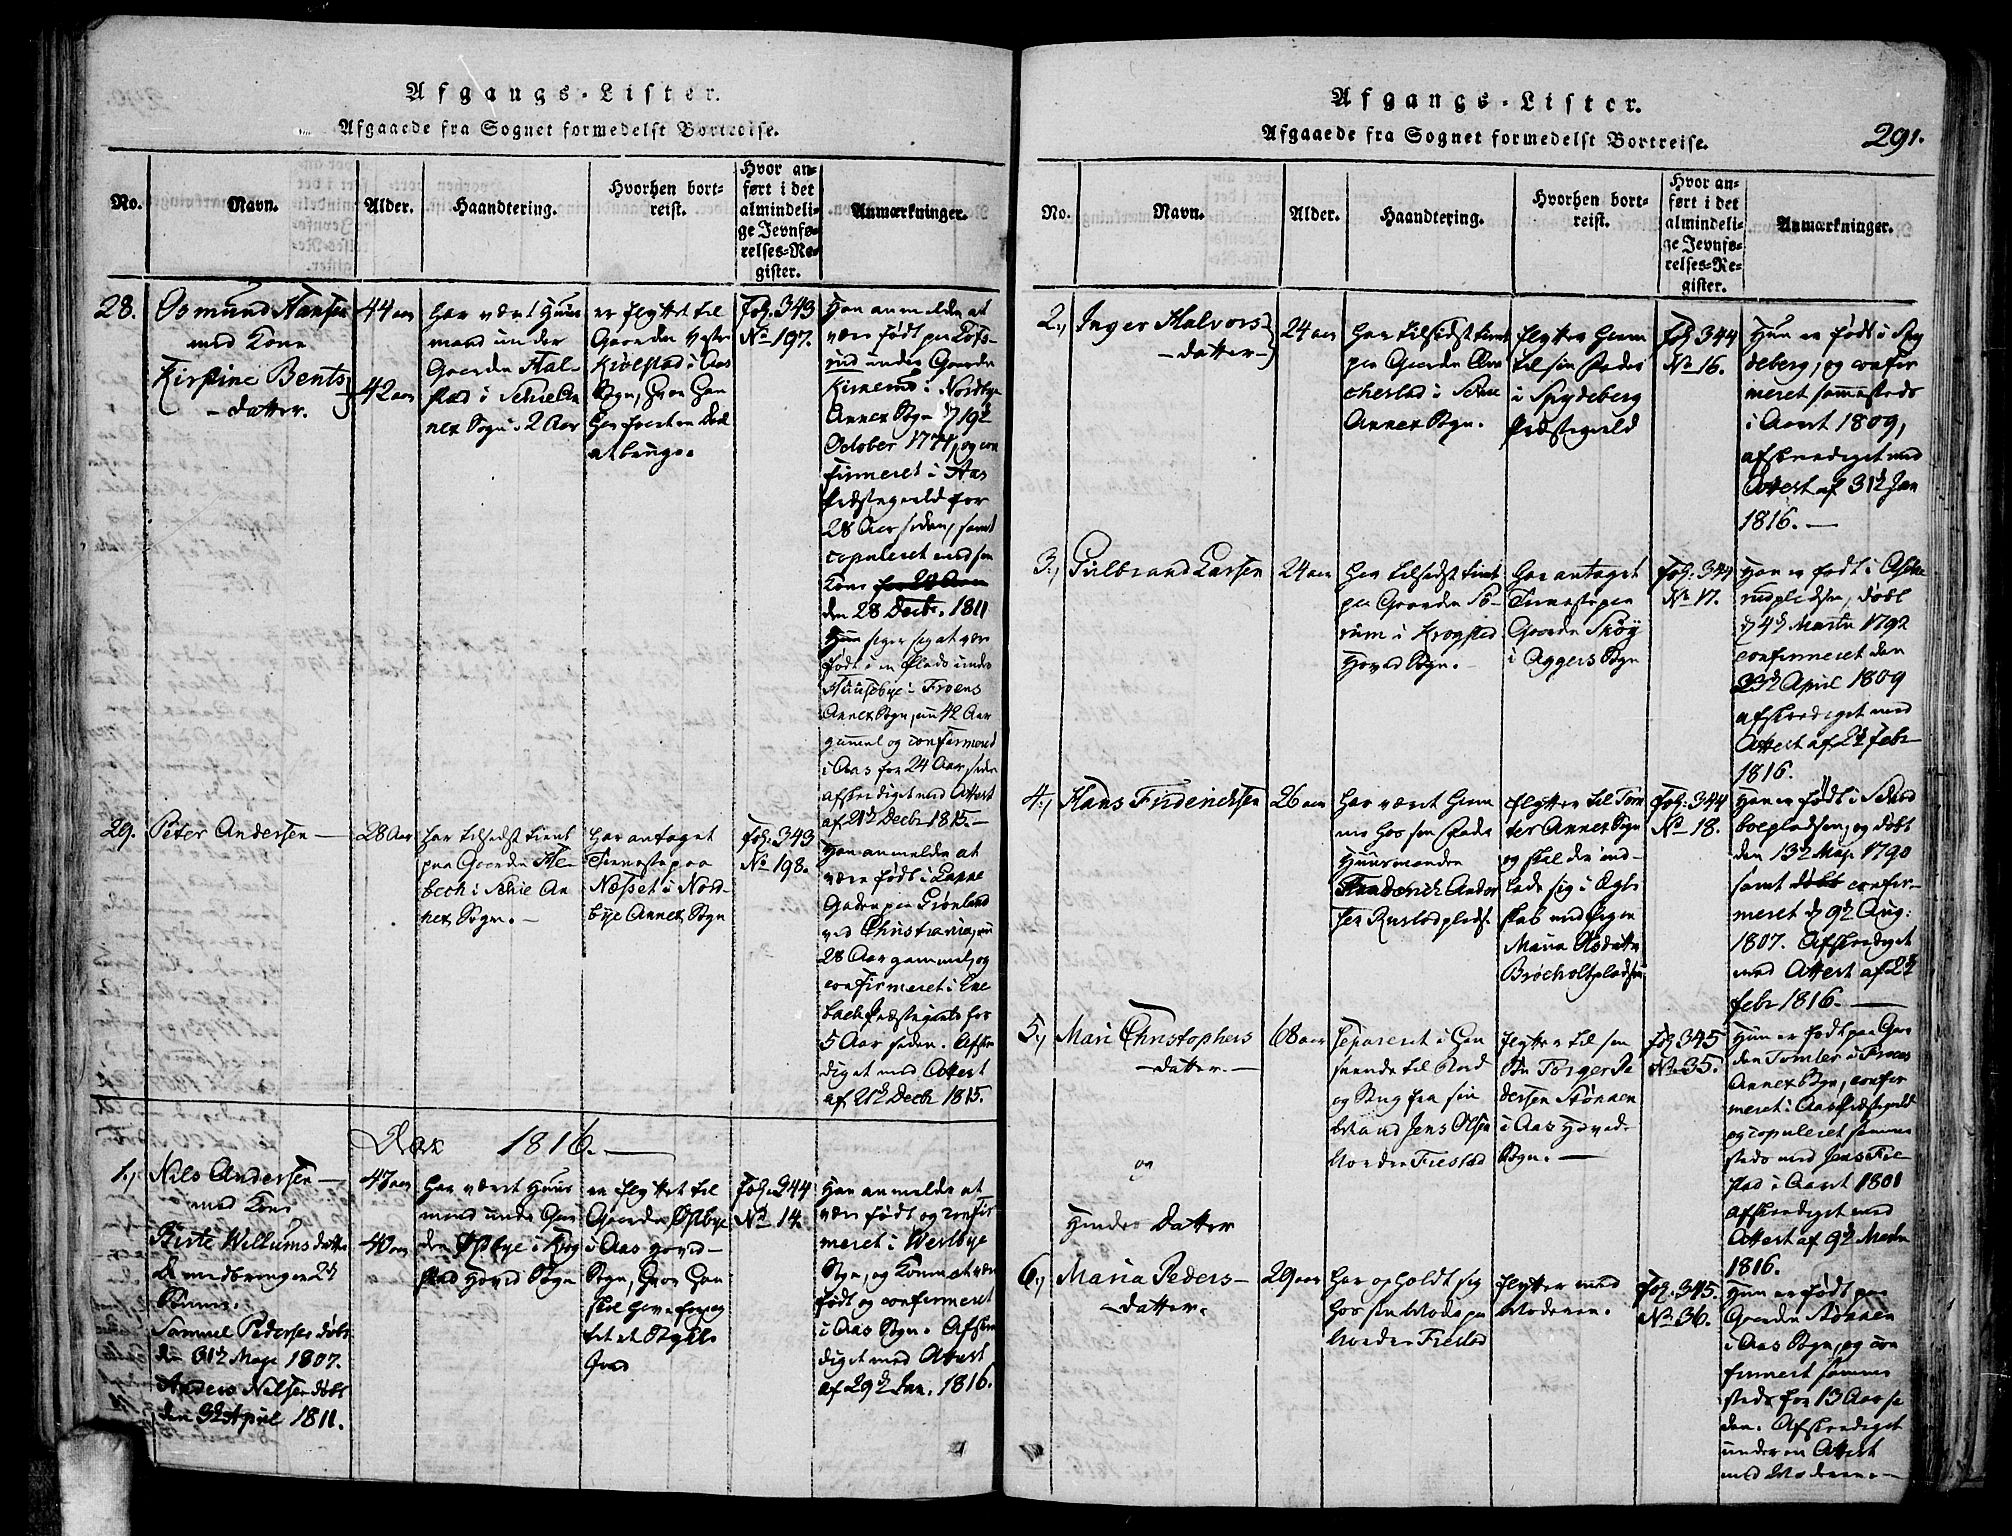 Afgangs-Lister.
Afgaaede fra Sognet formedelst Bortreise.
No.
Navn.
Alder.
Haandtering.
Hvorhen bort-
reist.
Hvor an-
ført i det
almindeli-
ge Jevnfø-
relses-Re-
gister.
Anmærkninger.
28.
Osmund Hansen
med Kone
Kirstine Bents
datter.
44 aar
42 aar
har vært Huus
mand under
Gaarden
stad i Schie An
nex Sogn i 2 Aar
er flyttet til
Gaarden Vestre
Kiølstad i Aas
Sogn, hvor han
Fol. 343
No 197.
Han anmelder at
være født paa
under Gaarden
i Nordbye
Annex Sogn d 19de
October 1771, og con
firmeret i Aas
Præstegield for
28 Aar siden, samt
copuleret med sin
Kone
den 28 Decbr. 1811
Hun siger sig at være
født i en Plads under
Huusebye i Froens
Annex Sogn, nu 42 Aar
gammel og confirmered
i Aas for 24 Aar siden
afskediget med Attest
af 21de Decb 1815.
29.
Peter Andersen
28 Aar
har tilsidst tient
paa Gaarden He-
bech i Schie An
nex Sogn.
har antaget
Tieneste paa
Næsset i Nord-
bye Annex Sogn
Fol. 343
No 198.
Han anmelder at
være født i
Gaden paa Grønland
ved Christiania, nu
28 Aar gammel, og
confirmeret i Ene
bach Præstegield for
5 Aar siden. Afske
diget med Attest
af 21de Decb 1815.
Aar 1816.
1.)
Nils Andersen
med Kone
Kirste Willumsdatter
de medbringer 2de
Sønner.
Samuel Pedersen døbt
den 31de Maje 1807.
Anders Nilsen døbt
den 3de April 1811.
47 aar
40 aar
har været Huus
mand under Gaar
den Østbye i Krog
stad Hoved Sogn
er flyttet til
Gaarden Østbye
i Aas Hoved-
Sogn, hvor han
Fol. 344
No 14.
Han anmelder at
være født og confir-
meret i Westbye
Sogn, og Konen at være
født og confirmeret
i Aas Sogn. Afske
diget med Attest
af 29de Jan. 1816.
Afgangs-Lister.
Afgaaede fra Sognet formedelst Bortreise.
291.
No.
Navn.
Alder.
Haandtering.
Hvorhen bort-
reist.
Hvor an-
ført i det
almindeli-
ge Jevnfø-
relses-Re-
gister.
Anmærkninger.
2.)
Inger Halvors
datter
24 aar
har tilsidst tient
paa Gaarden
i Schie
Annex Sogn.
flytter hiem
til sin Fader
i Spydeberg
Præstegield
Fol. 344
No 16.
Hun er født i Spy
deberg, og confir
meret sammesteds
i Aaret 1809,
afskediget med
Attest af 31de Jan
1816.
3.)
Gulbrand Larsen
24 aar
har tilsidst tient
paa Gaarden Sø-
rum i Krogstad
Hoved Sogn.
har antaget
Tieneste paa
Gaarden Skøy
i Aggers Sogn
Fol. 344
No 17.
Han er født i
rudpladsen, døbt
d 4de Martii 1792
confirmeret den
23de April 1809
afskediget med
Attest af 2de Febr
1816.
4.)
Hans Friderichsen
26 aar
har været hiem
me hos sin Fader
Huusmanden
Friderich Ander
sen Rustadpladsen
flytter til
Annex Sogn
og skal der ind-
lade sig i Ægte
skab med Pigen
Maria Olsdatter
Brøcholtpladsen
Fol. 344
No 18.
Han er født i
pladsen, og døbt
den 13de Maje 1790
samt døbt confir-
meret d 9de Aug:
1807. Afskediget
med Attest af 2de
Febr 1816.
5.)
Mari Christophers
datter
og
hendes Datter
68 aar
Separeret i Hen
seende til Bord
og Seng fra sin
Mand Jens Olsen
Nordre Fiestad
flytter til sin
Søn Torger Pe
dersen Stønnen
i Aas Hoved
Sogn.
Fol. 345
No 35.
Hun er født paa Gaar
den Tomter i Froens
Annex Sogn, confir
meret i Aas Præstegield
og copuleret sammen
steds med Jens Fie
stad i Aaret 1801
afskediget med
Attest af 9de Martii
1816.
6.)
Maria Peders-
datter.
29 aar
har opholdt sig
hos sin Moder paa
Nordre Fiestad
flytter med
Moderen.
Fol. 345.
No 36.
Hun er født paa
Gaarden Stønnen
i Aas Sogn, og con
firmert sammen
steds for 13 Aar si
den. Afskediget
under en Attest
med Moderen.